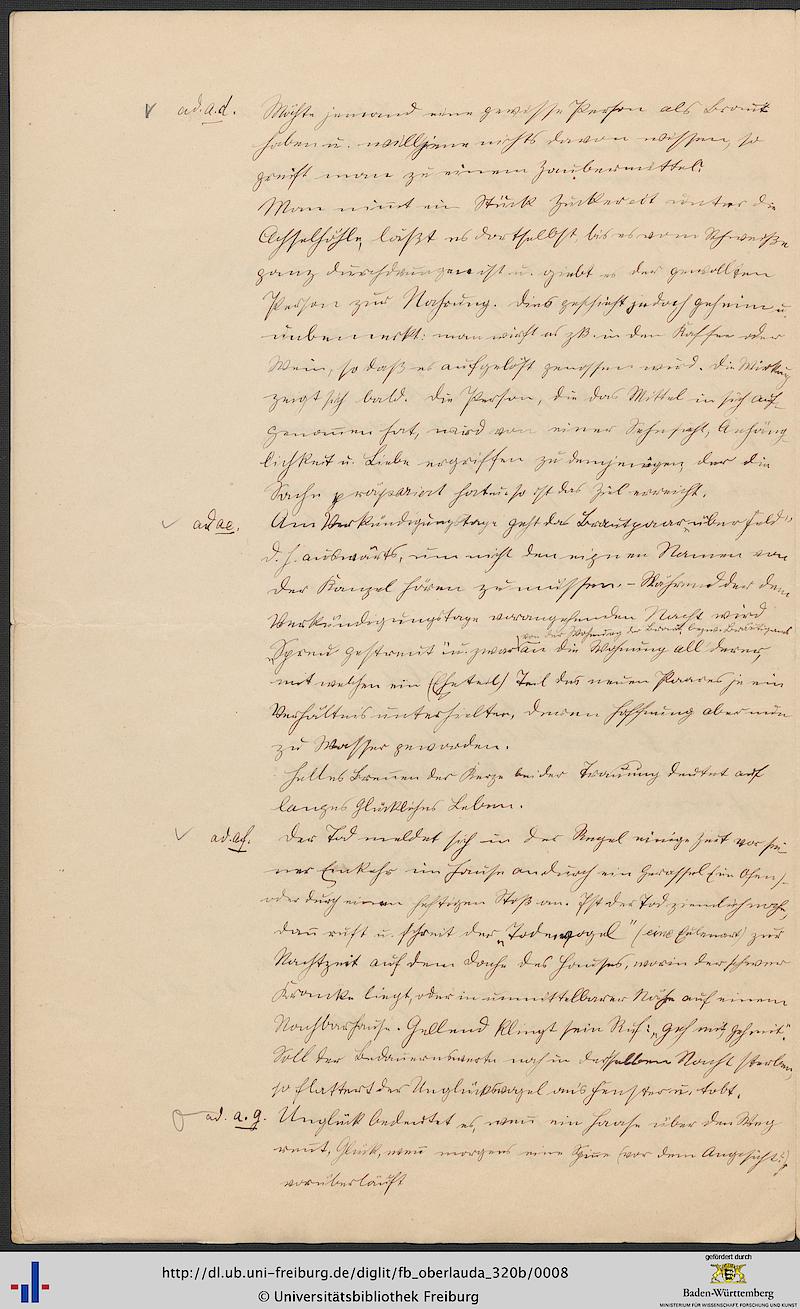 ad. a. d. Möchte jemand eine gewisse Person als Braut
haben u. will jene nichts davon wissen, so
greift man zu einem Zaubermittel:
Man nimt ein Stück Zucker mit unter die
Achselhöhle, läßt es dortselbst, bis es vom Schweiße
ganz durchdrungen ist u. giebt es der gewollten
Person zur Nahrung. Dies geschieht jedoch geheim u.
unbemerkt: man wirft es zB. in den Kaffee oder
Wein, so daß es aufgelöst genossen wird. Die Wirkung
zeigt sich bald. Die Person, die das Mittel in sich auf-
genomen hat, wird von einer Sehnsucht, Anhäng-
lichkeit u. Liebe ergriffen zu demjenigen, der die
Sache präpariert hat u. so ist das Ziel erreicht.
ad ae. Am Verkündigungstage geht das Brautpaar „über Feld"
d. h. auswärts, um nicht den eignen Namen von
der Kanzel hören zu müssen. – Während der dem
Verkündigungstage vorangehenden Nacht wird
von der Wohnung der Braut, bezw. Bräutigams
Spreu gestreut u. zwar an die Wohnung all derer,
mit welchen ein (Eheteil) Teil des neuen Paares je ein
Verhältnis unterhielten, deren Hoffnung aber nun
zu Wasser geworden.
Helles Brennen der Kerze bei der Trauung deutet auf
langes glückliches Leben.
ad. af. Der Tod meldet sich in der Regel einige Zeit vor sei-
ner Einkehr im Hause an durch ein Gerassel (im Ofen)
oder durch einen heftigen Stoß an. Ist der Tod ziemlich nahe,
dan ruft u. schreit der „Todenvogel" (eine Eulenart) zur
Nachtzeit auf dem Dache des Hauses, worin der schwer
Kranke liegt, oder in unmittelbarer Nähe auf einem
Nachbarhause. Gellend klingt sein Ruf: „Geh mit geh mit".
Soll der Bedauernswerte noch in derselben Nacht sterben,
so flattert der Unglücksvogel ans Fenster u. tobt.
ad. a. g. Unglück bedeutet es, wen ein Haase über den Weg
rent, Glück, wen morgens eine Spine (vor dem Angesicht)
vorüberläuft
http://dl.ub.uni-freiburg.de/diglit/fb_oberlauda_320b/0008
© Universitätsbibliothek Freiburg
gefördert durch
Baden-Württemberg
MINISTERIUM FÜR WISSENSCHAFT, FORSCHUNG UND KUNST